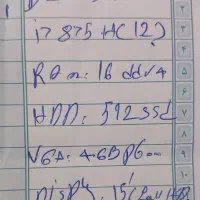 i7 875 H(12)
RAm: 16 ddr4
HDD: 512 ssd
VGA: 4GB P600
DISPly: 15